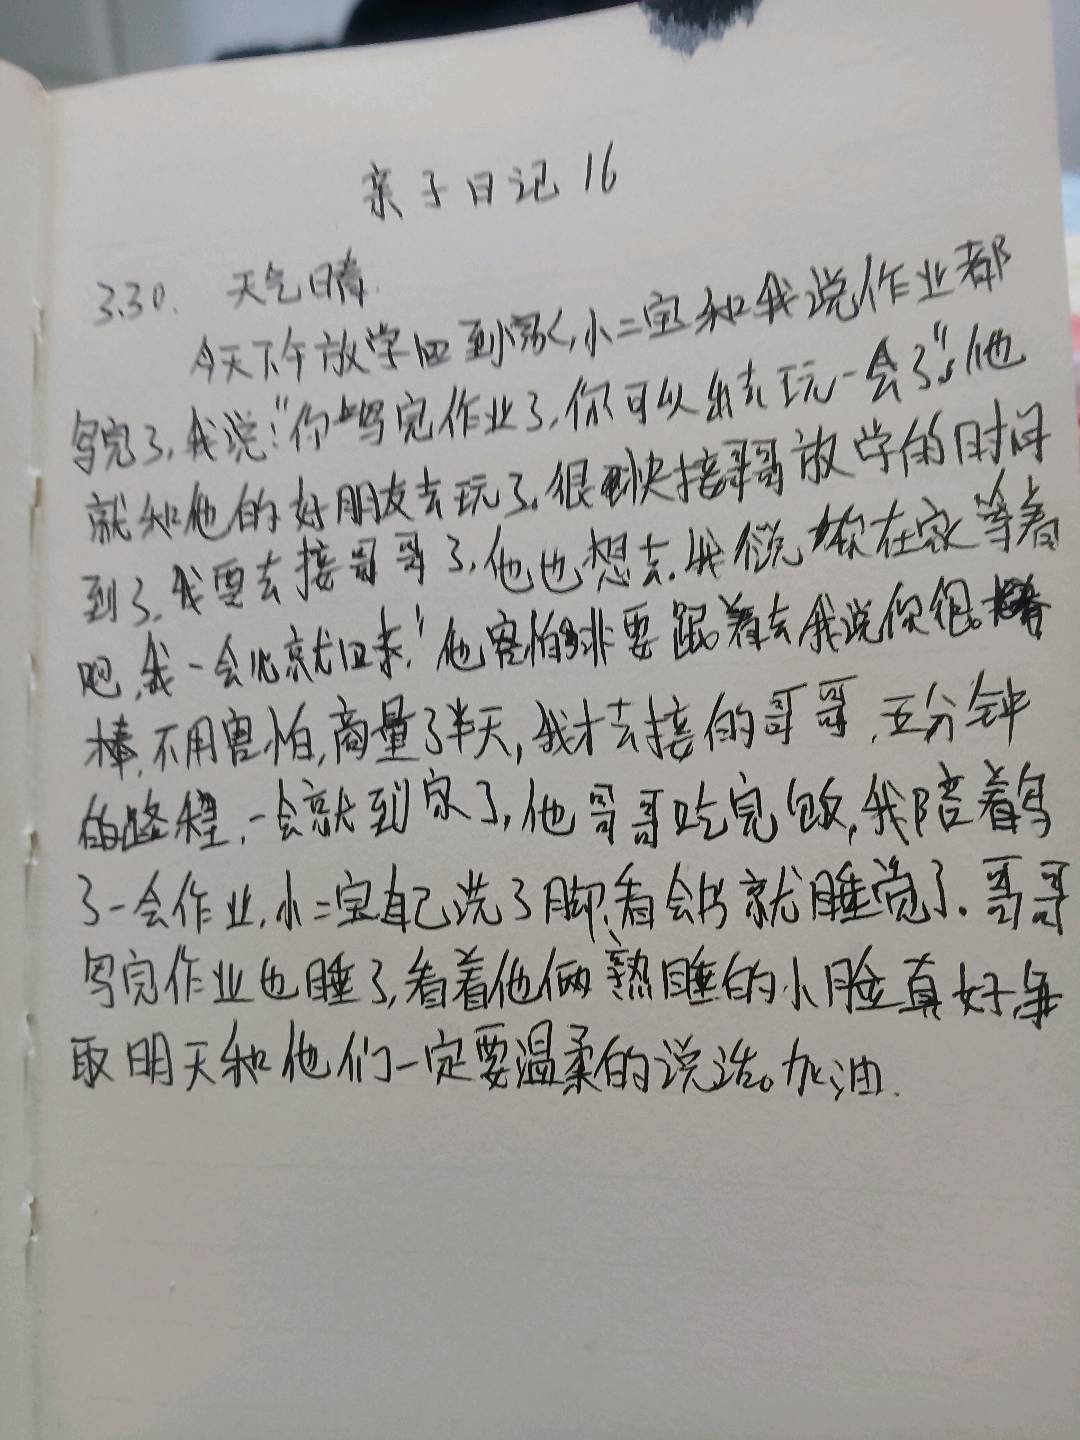 亲子日记16
3.30. 天气晴.
今天下午放学回到家,小二宝和我说作业都
写完了,我说:"你写完作业了,你可以出去玩一会了"。他
就和他的好朋友去玩了。很快接哥哥放学的时间
到了,我要去接哥哥了,他也想去.我说你在家等着
吧,我一会儿就回来,"他害怕非要跟着去我说你很
棒,不用害怕,商量了半天,我才去接的哥哥,五分钟
的路程,一会就到家了,他哥哥吃完饭,我陪着写
了一会作业,小二宝自己洗了脚,看会书就睡觉了.哥哥
写完作业也睡了,看着他俩熟睡的小脸真好,争
取明天和他们一定要温柔的说话。加油.